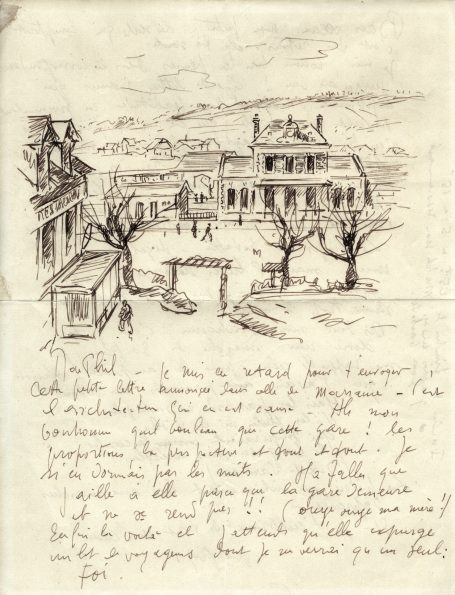 RESTAURANT
je suis en retard pour t'envoyer
cette petite lettre annoncée dans celle de
l'architecture qui en est cause
bonhomme quel boulot que cette gare ! les
proportions la perspective et tout et tout. Je
n'en dormais pas les nuits. Il a fallu que
j'aille à elle parce que la gare demeure
et ne se rend pas !! (ouye ouye ma mère !)
Enfin la voilà et j'attends qu'elle
le voyageurs dont je ne verrai qu'un seul :
Toi.